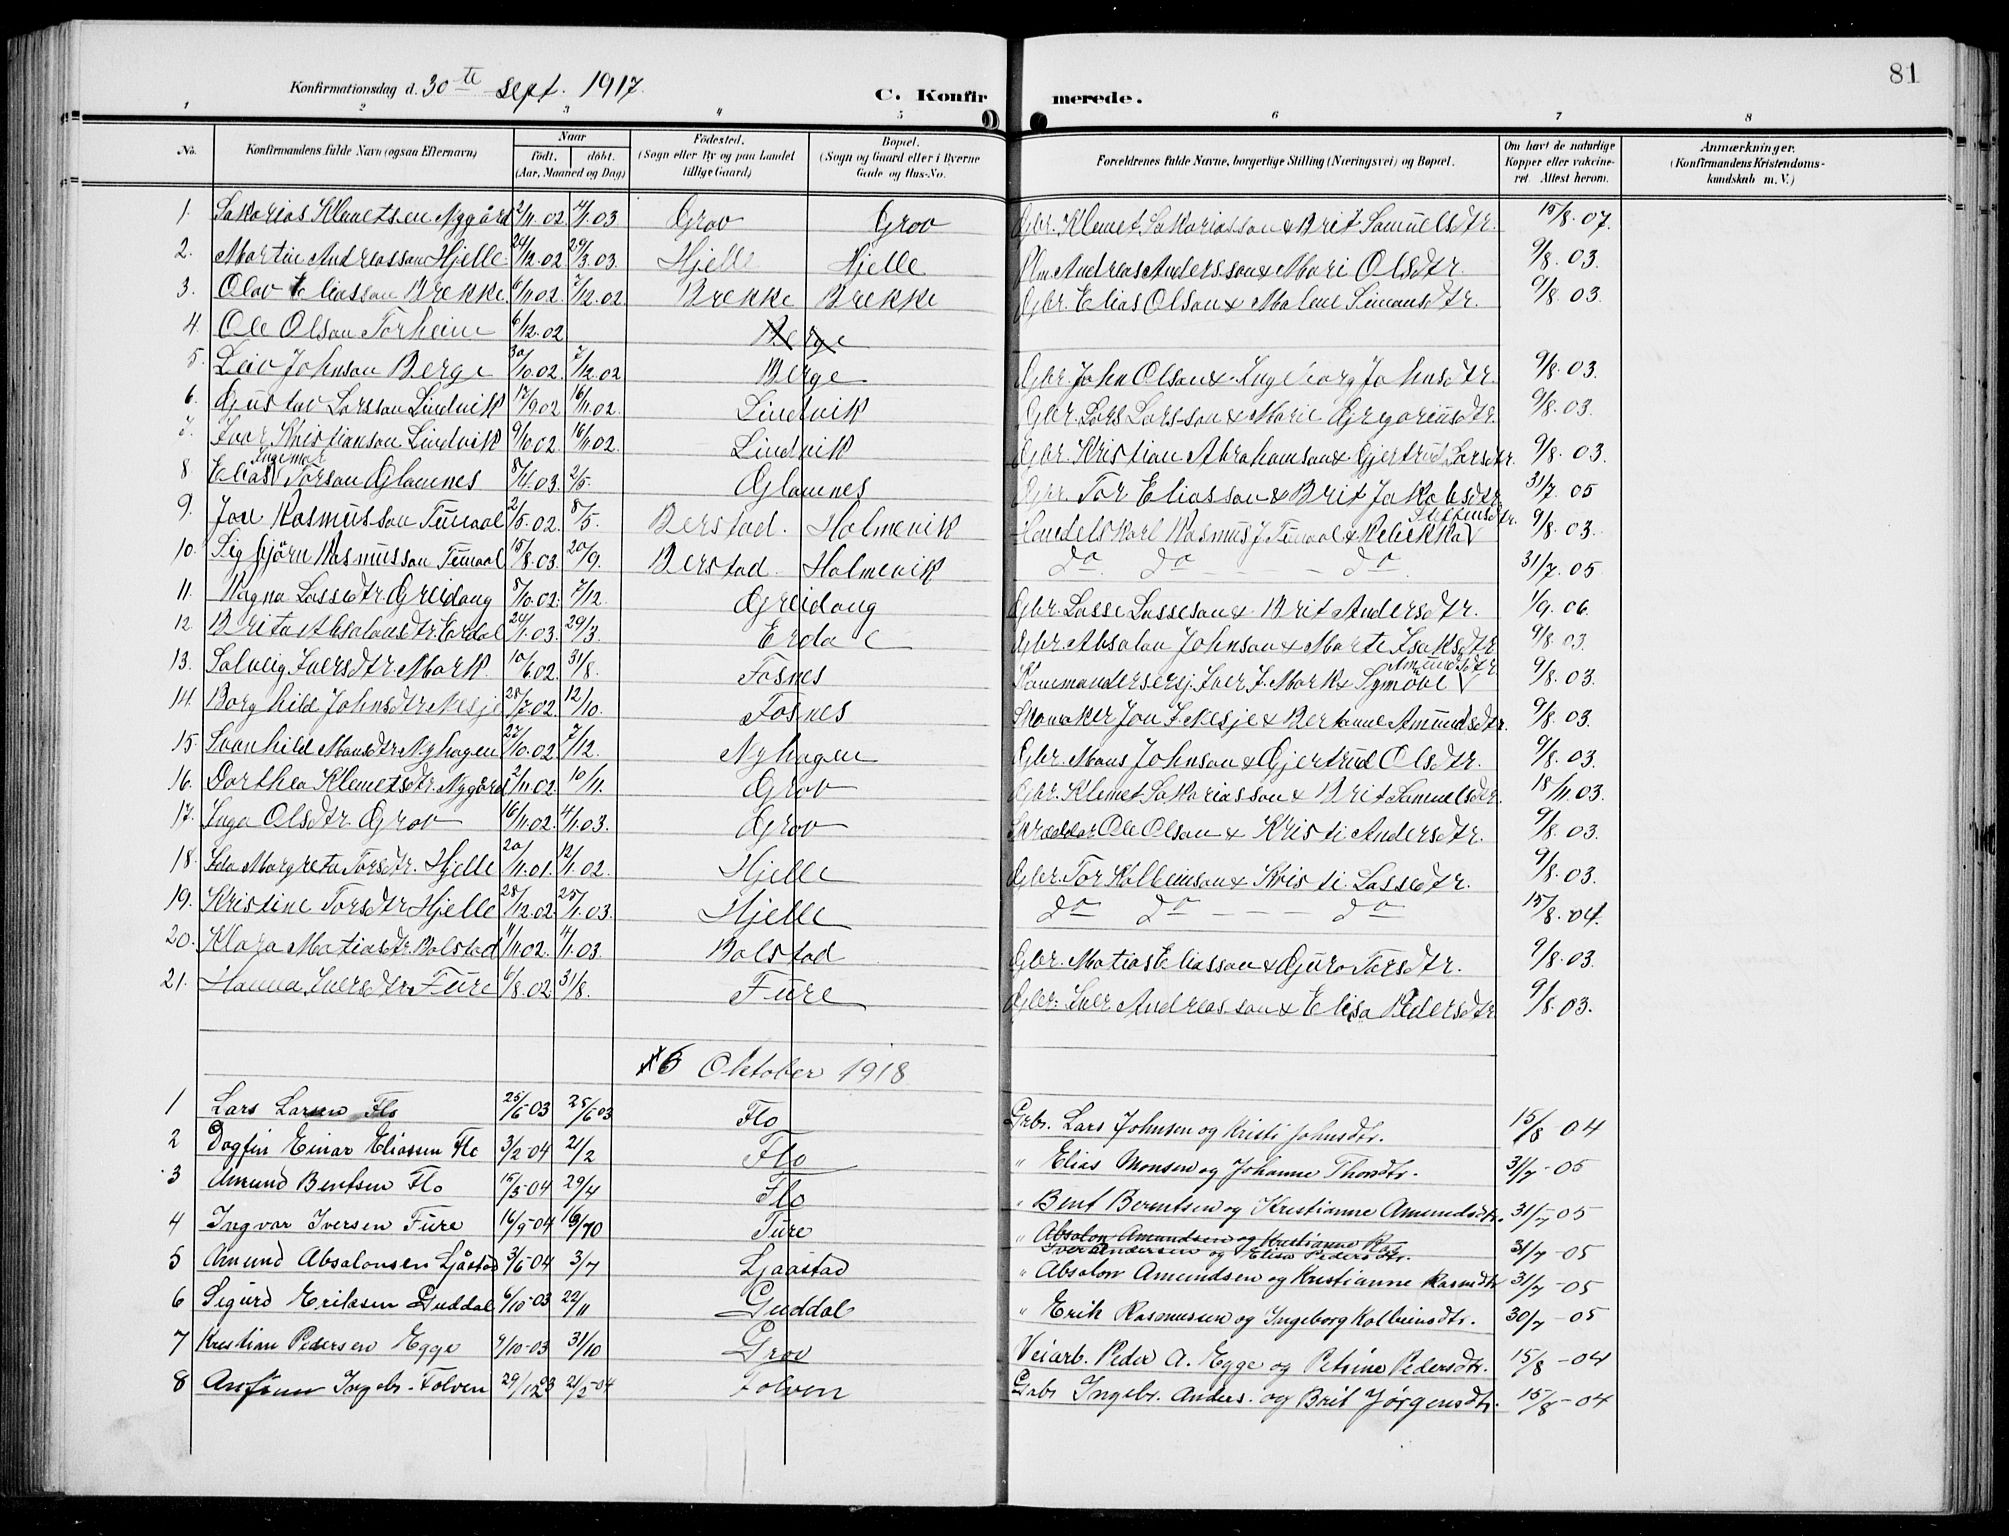 81
Konfirmationsdag d. 30te sept. 1917.
C. Konfirmerede.
1 2 3 4 5 6 7 8
No. Konfirmandens fulde Navn (ogsaa Efternavn) Naar født. døbt. (Aar, Maaned og Dag) Födested. (Sogn eller By og paa Landet tillige Gaard) Bopæl. (Sogn og Gaard eller i Byerne Gade og Hus-No. Forældrenes fulde Navne, borgerlige Stilling (Næringsvei) og Bopæl. Om havt de naturlige Kopper eller vakcineret. Attest herom. Anmærkninger. (Konfirmandens Kristendomskundskab m. V.)
1. Sakarias Klemetsen Nygård 2/11.02. 4/1.03 Grov Grov Gbr. Klemet Sakariasson & Brit Samuelsdtr. 15/8.07.
2. Martin Andreasson Hjelle 24/12.02 29/3.03. Hjelle Hjelle Andreas Anderssen & Mari Olsdtr. 9/8.03.
3. Olav Eliasson Brekke 6/11.02. 7/12.02 Brekke Brekke Gbr. Elias Olson & Malene Simonsdtr. 9/8.03.
4. Ole Olson Torheim 6/12.02 Berge
5. Leiv Johnson Berge 30/10.02. 7/12.02 Berge Gbr. John Olson & Ingeborg Johnsdtr. 9/8.03.
6. Gustav Larsson Lindvik 17/9.02 16/11.02. Lindvik Gbr. Lars Larsson & Marie Gregoriusdtr. 9/8.03.
7. Ivar Kristianson Lindvik 9/10.02. 16/11.02. Lindvik Gbr. Kristian Abrahamson & Gjertrud Larsdtr. 9/8.03.
8 Elias Ingemar Torson Glamnes 8/11.03. 2/5. Glamnes Gbr. Tor Eliasson & Brit Jakobsdtr. 31/7.05
9. Jon Rasmusson Timaal 2/5.02. 8/5. Berstad. Holmevik Handelskarl Rasmus J. Timaal & Rebekka Steffensdtr. 9/8.03.
10. Sigbjörn Rasmusson Timaal 15/8.03. 20/9. Berstad Holmevik do do - - - do 31/7.05
11. Ragna Lassedtr. Greidang 8/10.02. 7/12. Greidang Gbr. Lasse Lasseson & Brit Andersdtr. 1/9.06.
12. Brita Absalonsdtr. Erdal 24/1.03. 29/3. Erdal Gbr. Absalon Johnson & Marte Isaksdtr. 9/8.03.
13. Solveig Iversdtr. Mork. 10/6.02. 31/8. Fosnes Kommandersersj. Iver J. Mork & Symöve Amundsdtr. 9/8.03.
14. Borghild Johnsdtr. Nesje 28/7.02. 12/10. Fosnes Skomaker Jon I. Nesje & Bertine Amundsdtr. 9/8.03.
15 Svanhild Monsdtr. Nyhagen 27/10.02. 7/12. Nyhagen Gbr. Mons Johnson & Gjertrud Olsdtr. 9/8.03.
16. Dorthea Klemetsdtr. Nygård 2/11.02. 10/11. Grov Gbr. Klemet Sakariasson & Brit Samuelsdtr. 18/11.03.
17. Inga Olsdtr. Grov 16/11.02. 4/1.03. Grov Skrædder Ole Olson & Kristi Andersdtr. 9/8.03.
18. Ida Margreta Torsdtr. Hjelle 20/11.01. 12/1.02. Hjelle Gbr. Tor Kolbeinson & Kristi. Lassedtr. 9/8.03.
19. Kristine Torsdtr. Hjelle 28/12.02. 25/1.03. Hjelle do do - - - do 15/8.04.
20. Klara Matiasdtr. Bolstad 11/11.02. 4/1.03. Bolstad Gbr. Matias Eliasson & Guro Torsdtr. 9/8.03.
21. Hanna Iversdtr. Fure 6/8.02 31/8. Fure Gbr. Iver Andreasson & Elisa Pedersdtr. 9/8.03.
6 Oktober 1918
1 Lars Larsen Flo 25/5 03 25/6 03 Flo Grbr. Lars Johnsen og Kristi Johnsdtr. 15/8 04
2 Dagfin Einar Eliassen Flo 3/2-04 21/2 Flo " Elias Monsen og Johanne Thorsdtr. 31/7-05
3 Amund Bentsen Flo 15/3-04 29/4 Flo " Bent Berentsen og Kristianne Amundsdtr. 31/7-05
4 Ingvar Iversen Fure 16/9-04 16/10 Fure " Absalon Amundsen og Kristianne Ras
Iver Andersen og Elisa Pedersdtr. 31/7-05
5 Amund Absalonsen Ljåstad 3/6-04 3/7 Ljaastad " Absalon Amundsen og Kristianne Rasmdtr. 31/7-05
6 Sigurd Eriksen Guddal 6/10-03 22/11 Guddal " Erik Rasmussen og Ingeborg Kolbeinsdtr. 30/7-05
7 Kristian Pedersen Egge 9/10-03 31/10 Grov Veiarb. Peder A. Egge og Petrine Pedersdtr. 15/8-04
8 Ingebr. Folven 29/12 03 21/2-04 Folven Grbr Ingebr. Anders. og Brit Jørgensdtr. 15/8-04